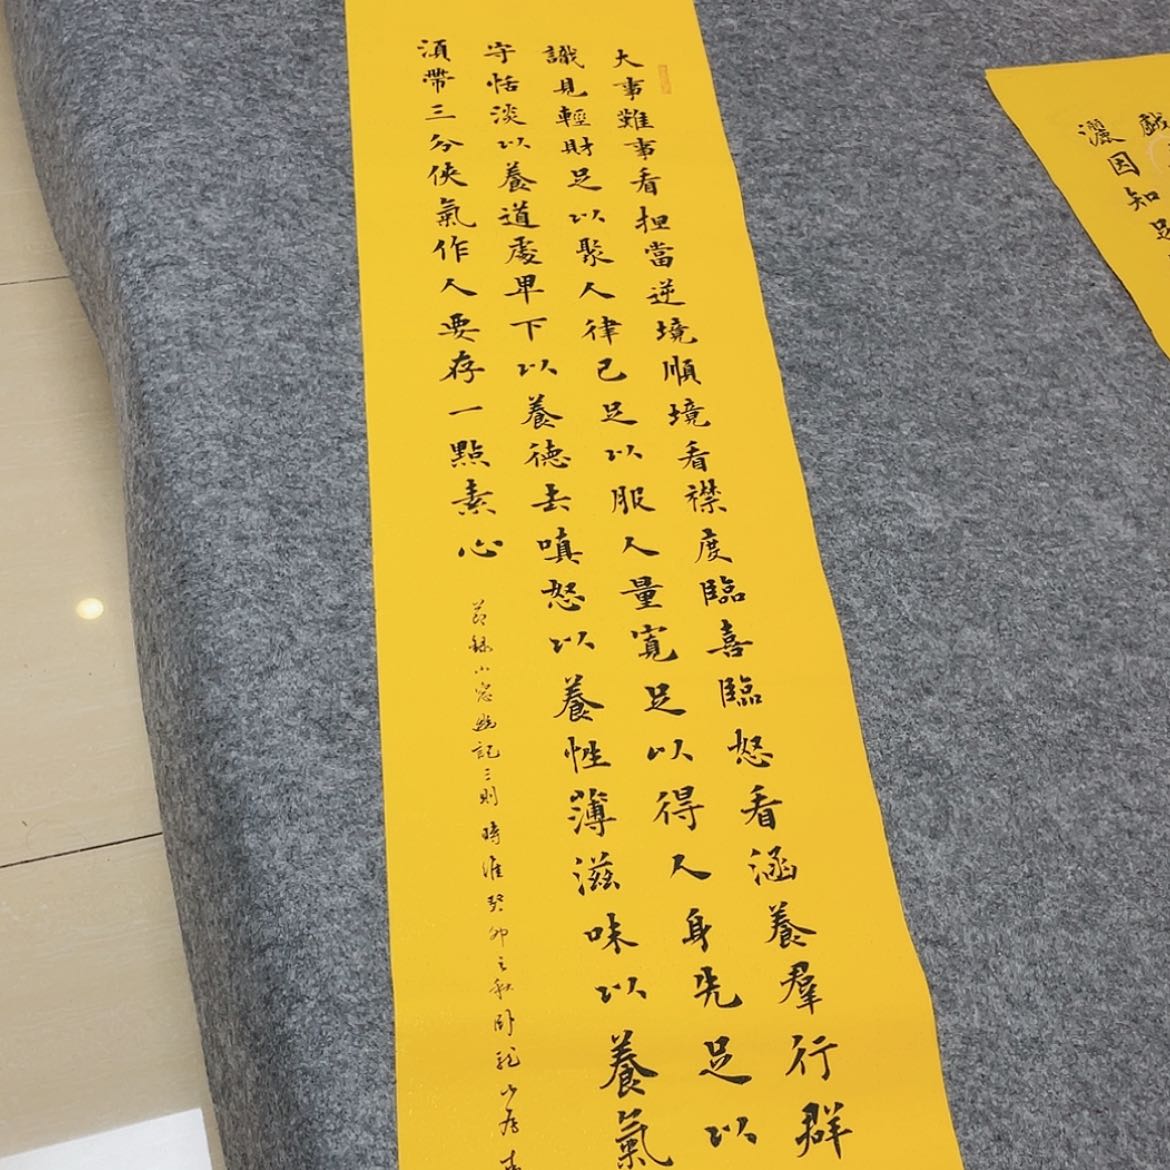 大事難事看担當逆境順境看襟度臨喜臨怒看涵養羣行群
識見輕財足以聚人律己足以服人量寬足以得人身先足以
守恬淡以養道處卑下以養德去嗔怒以養性薄滋味以養氣
須帶三分俠氣作人要存一點素心
節錄小窗幽記三則 時維癸卯之秋卧龍山房
戲
灑因知是